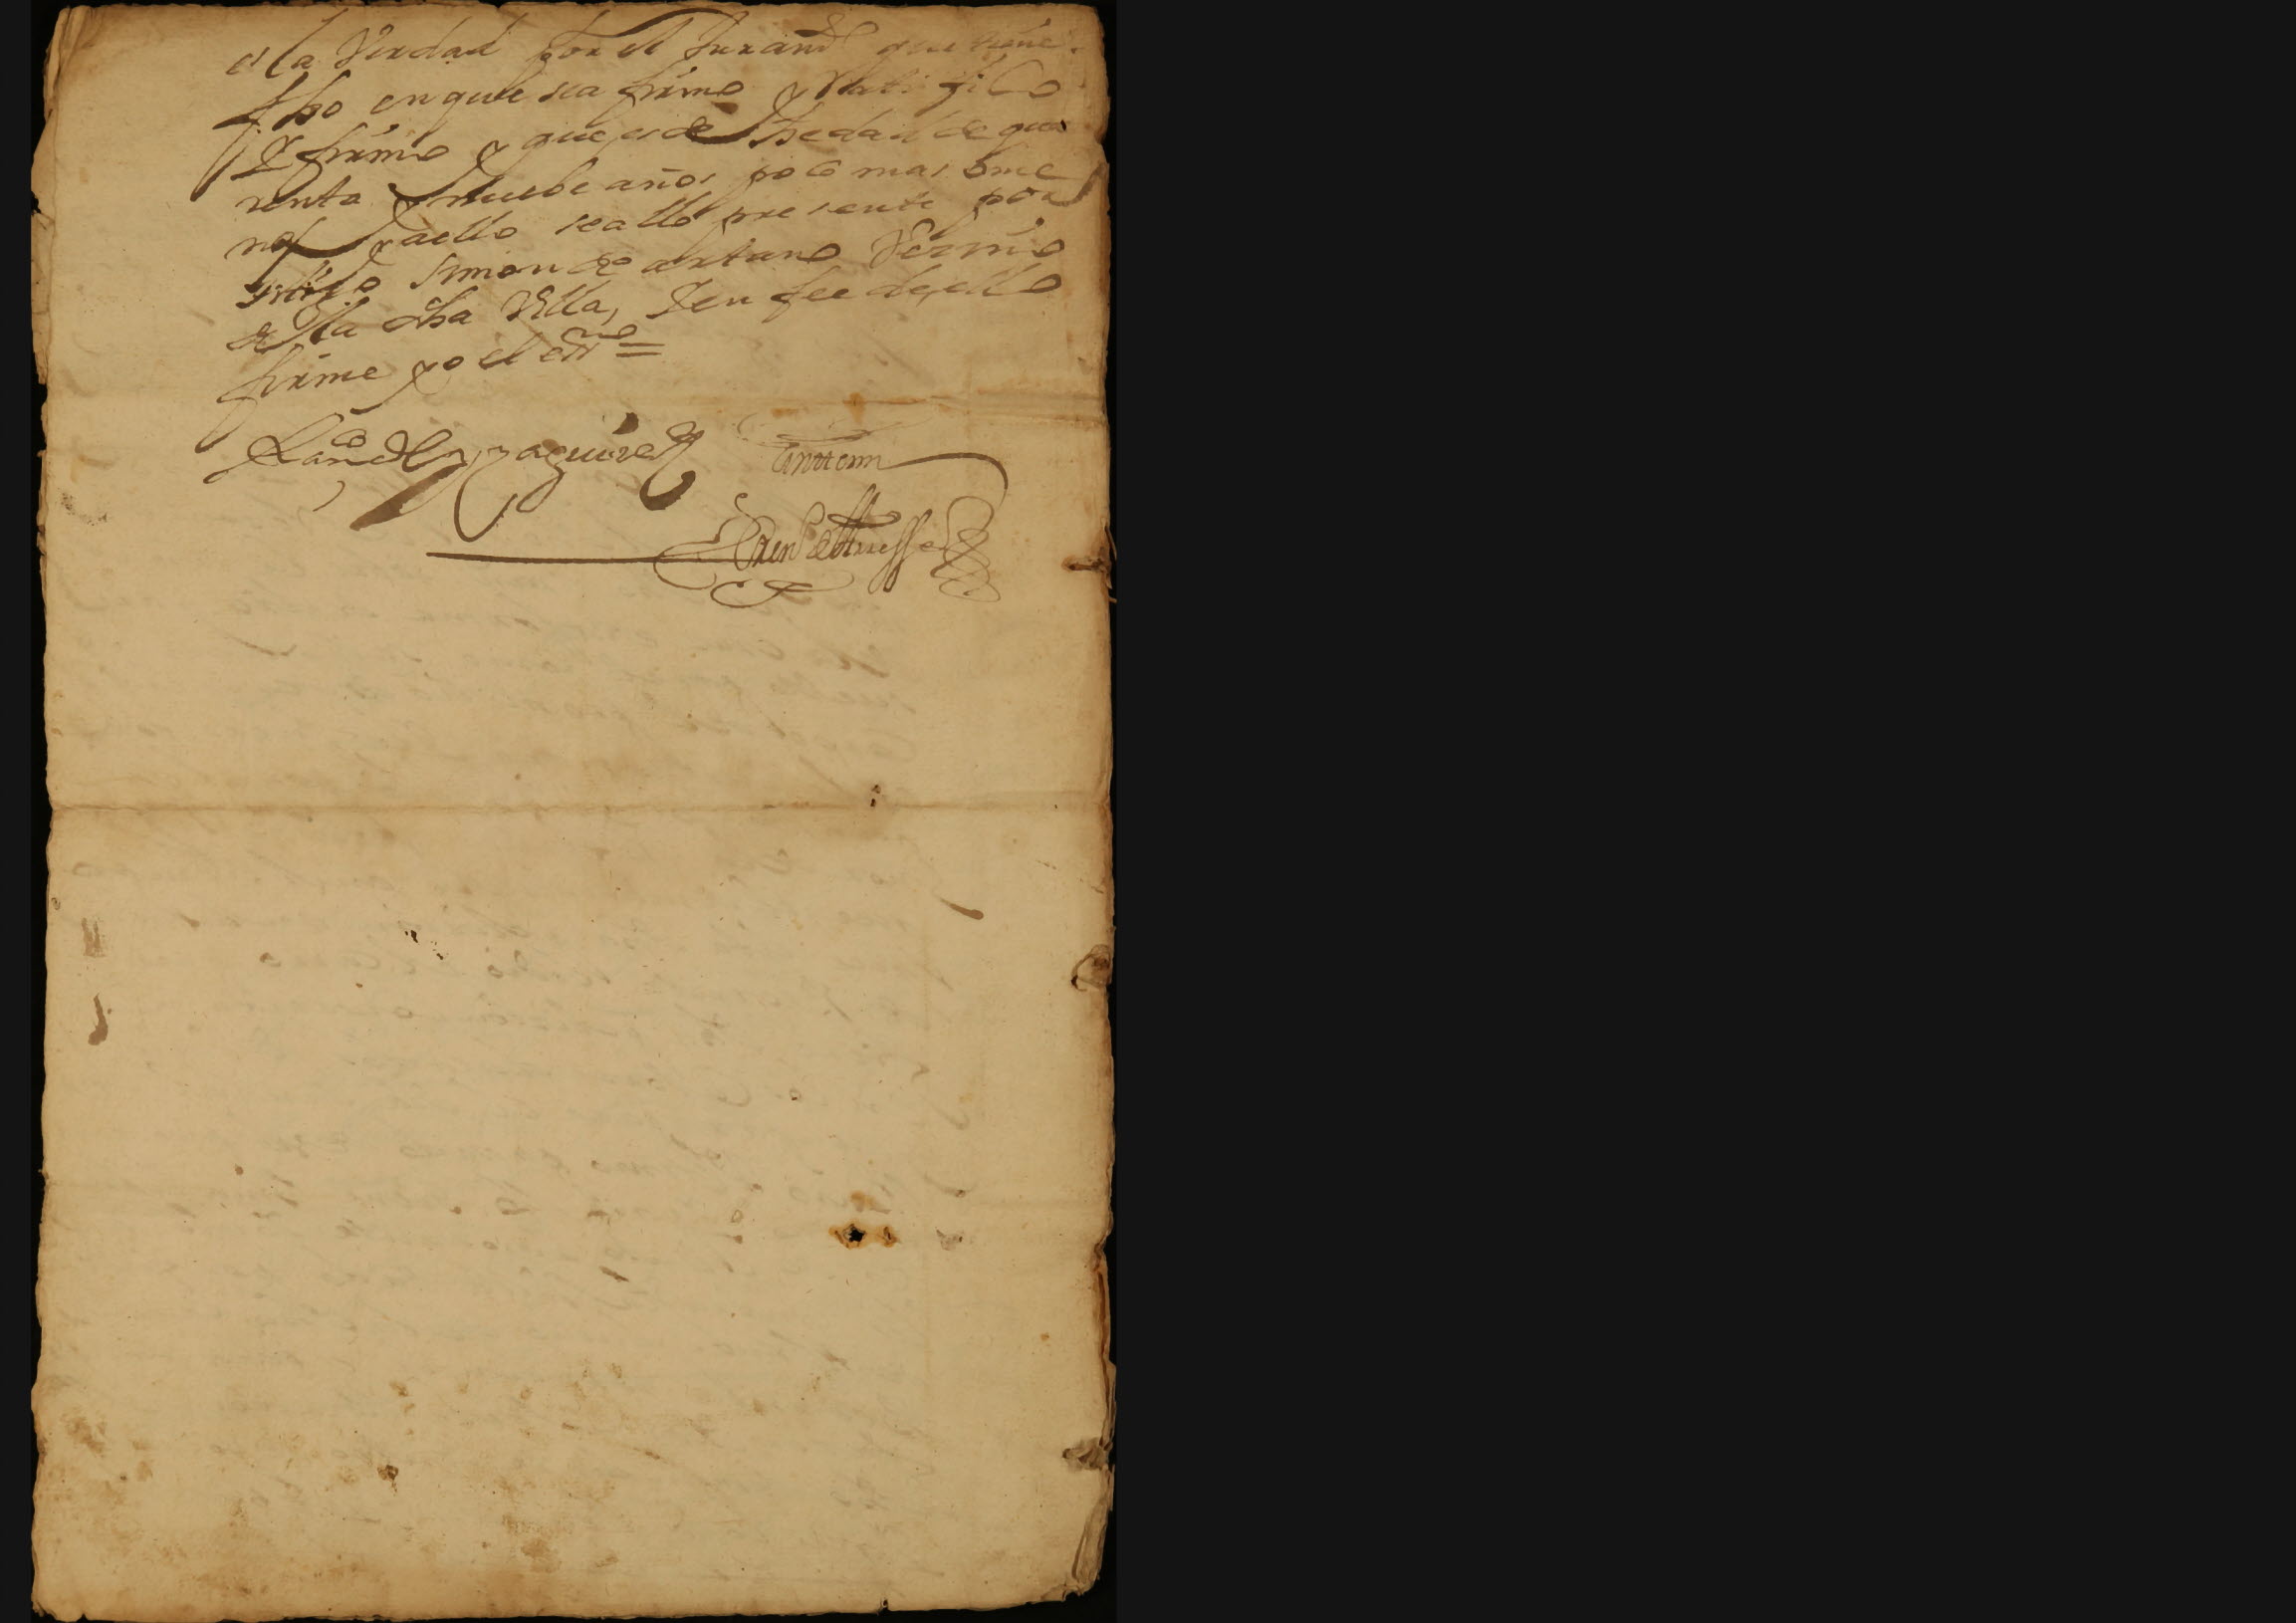 es la Verdad por el Juramᵗᵒ que tiene
fho en que sea firmo y Ratifico
y firmo y que es de hedad de qua
renta y nuebe años poco mas o me
nos y a ello se allo presente por
testigo Simon de artano Vezino
de la dha Villa, Y en fee de ello
firme yo el essno =
Franco de Yzaguirre
Ante mi